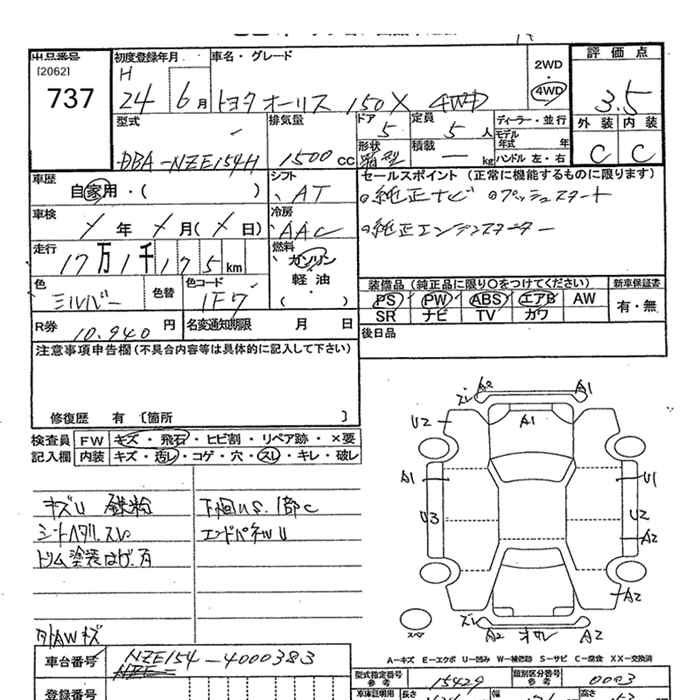 出品番号 初度登録年月 車名・グレード 2WD 評価点
[2062] H ・
737 24 6月 トヨタ オーリス 150X 4WD 4WD 3.5
型式 排気量 ドア 定員 ディーラー・並行 外装 内装
DBA-NZE154H 1500cc 5 5人 モデル年式 年 C C
形状 積載 ハンドル 左・右
箱型 — kg
車歴 自家用・( ) シフト AT セールスポイント (正常に機能するものに限ります)
純正ナビ プッシュスタート
車検 年 月( 日) 冷房 AAC 純正エンジンスターター
走行 17万1千175km 燃料 ガソリン
軽油
色 シルバー 色替 色コード 1F7 ( ) 装備品 (純正品に限り〇をつけてください) 新車保証書
PS PW ABS エアB AW 有・無
SR ナビ TV カワ
R券 10,940円 名変通知期限 月 日 後日品
注意事項申告欄(不具合内容等は具体的に記入して下さい)
修復歴 有 〔箇所 〕
検査員 FW キズ・飛石・ヒビ割・リペア跡・×要
記入欄 内装 キズ・汚レ・コゲ・穴・スレ・キレ・破レ
キズU 鉄粉 下回りS.1部C
シートヘタリ.スレ エンドパネルU
トリム塗装はげ.有
外AWキズ
スレ A2 A1
U2 A1
A1 U1
U3 U2
A2
A2
スレ
スペ A2 オサレ A2
A-キズ E-エクボ U-凹み W-補修跡 S-サビ C-腐食 XX-交換済
車台番号 NZE154-4000383
型式指定番号 参考 15429 類別区分番号 参考 0003
登録番号 車庫証明用 長さ 幅 高さ